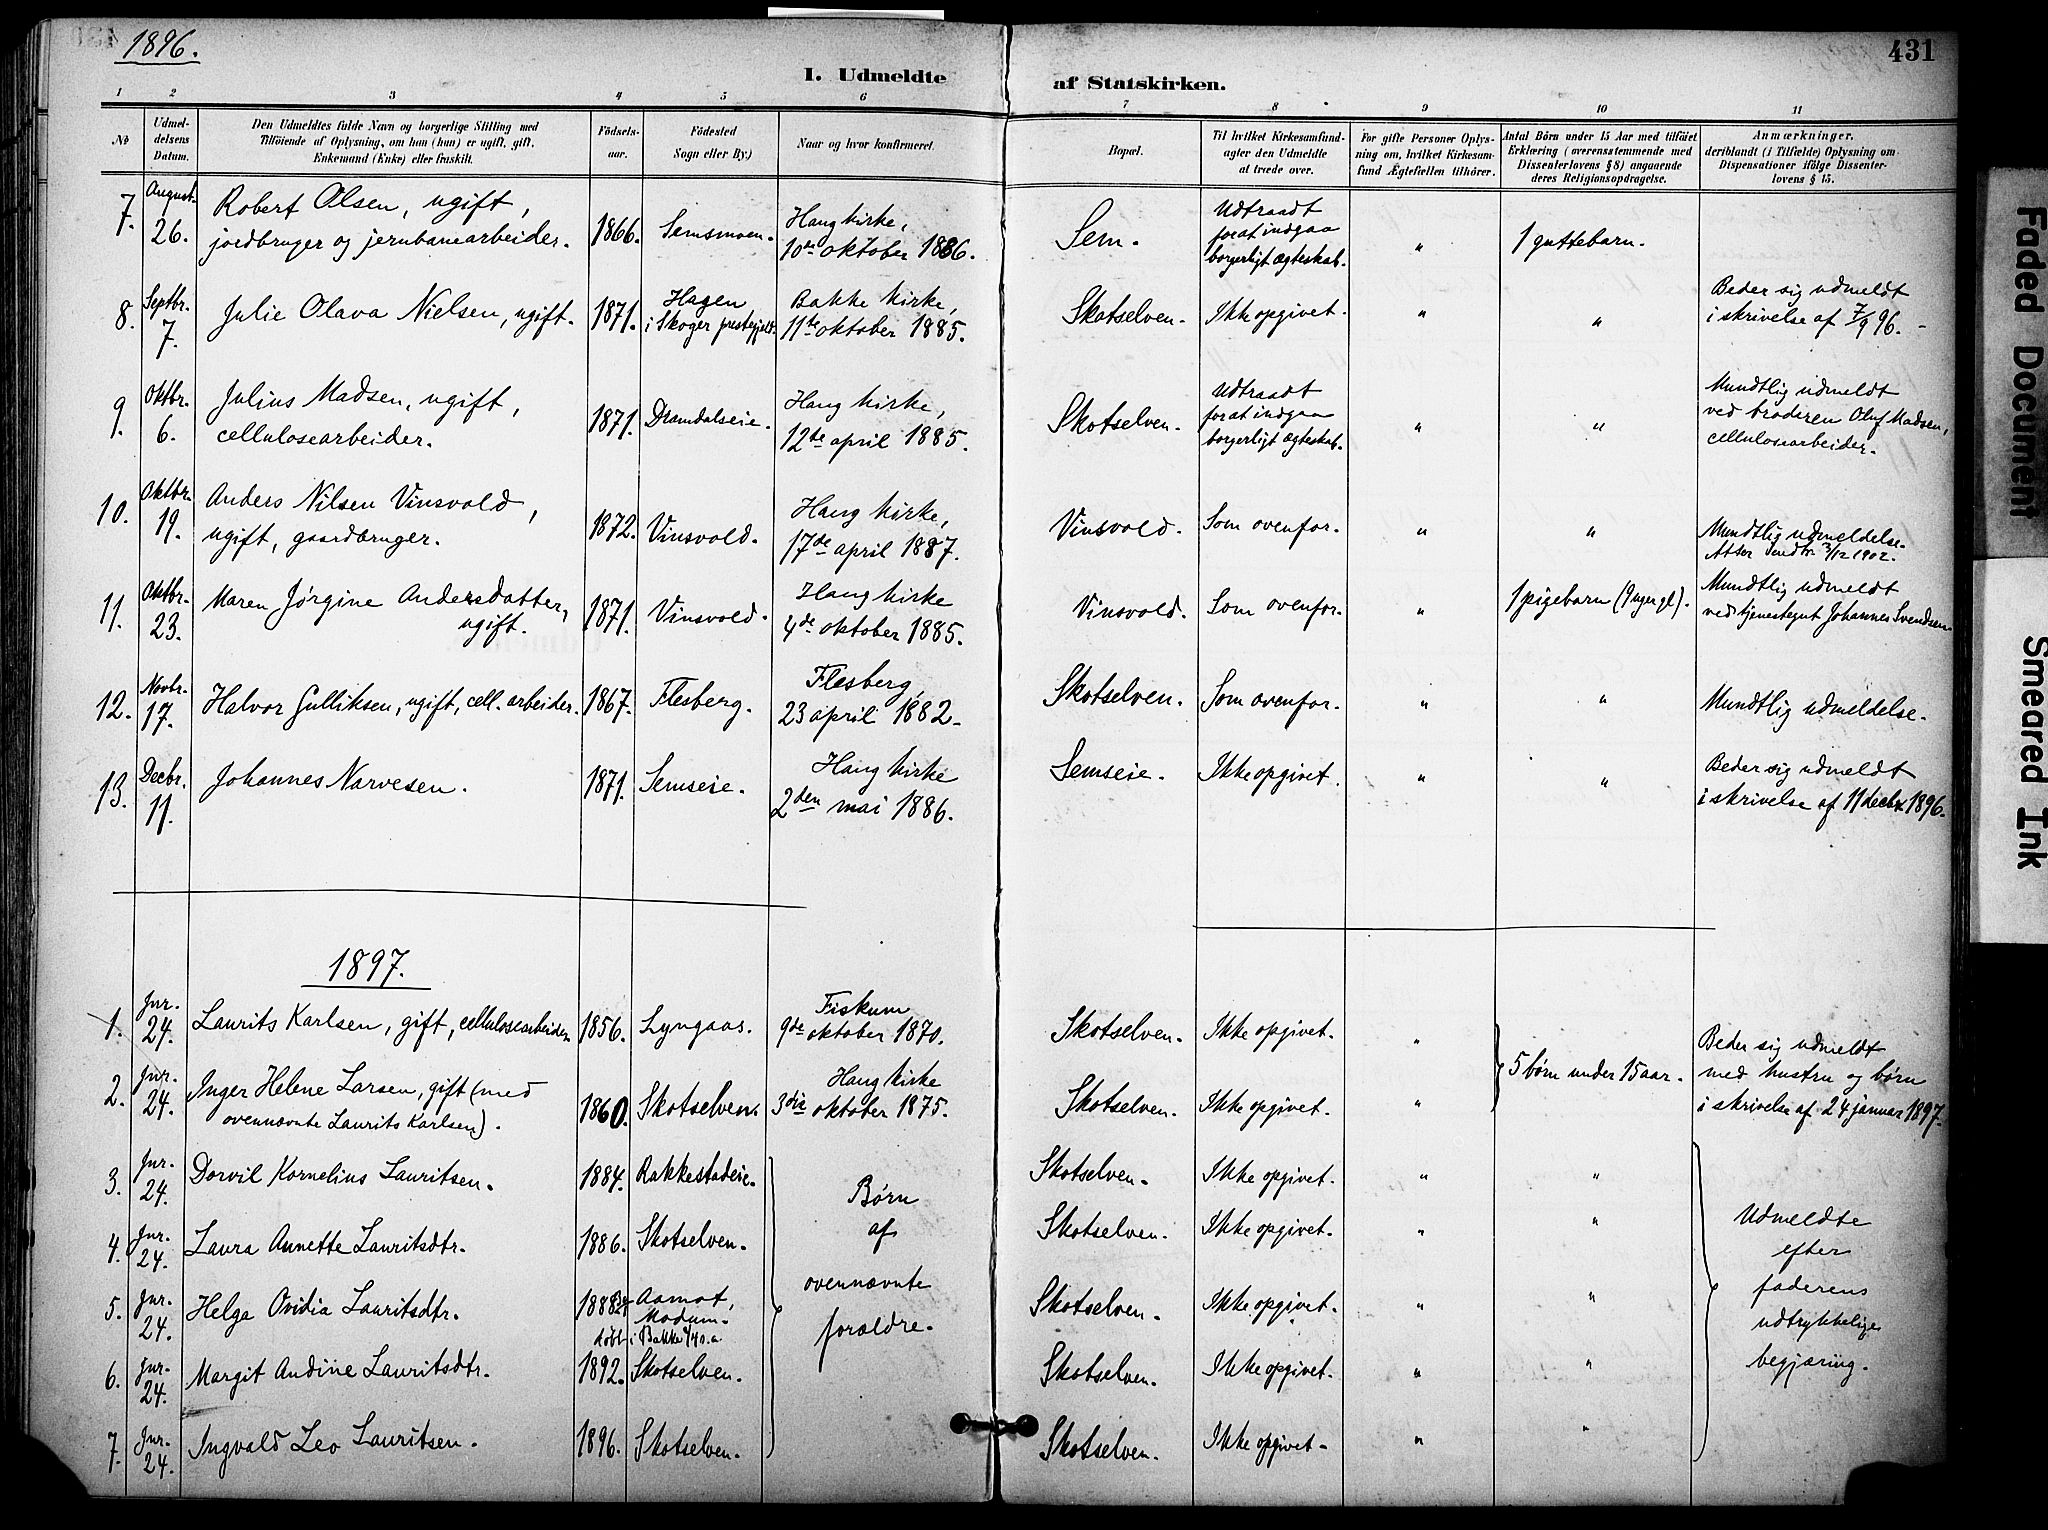 1896.
431
I. Udmeldte af Statskirken.
1 2 3 4 5 6 7 8 9 10 11
No
Udmel-
delsens
Datum.
Den Udmeldtes fulde Navn og borgerlige Stilling med
Tilföiende af Oplysning, om han (hun) er ugift, gift,
Enkemand (Enke) eller fraskilt.
Födsels-
aar.
Födested
Sogn eller By.)
Naar og hvor konfirmeret.
Bopæl.
Til hvilket Kirkesamfund-
agter den Udmeldte
at træde over.
For gifte Personer Oplys-
ning om, hvilket Kirkesam-
fund Ægtefællen tilhörer.
Antal Börn under 15 Aar med tilföiet
Erklæring (overensstemmende med
Dissenterlovens § 8) angaaende
deres Religionsopdragelse.
Anmærkninger,
deriblandt (i Tilfælde) Oplysning om
Dispensationer ifölge Dissenter-
lovens § 15.
7.
August.
26.
Robert Olsen, ugift,
jordbruger og jernbanearbeider.
1866.
Semsmoen.
Haug kirke,
10de oktober 1886.
Sem.
Udtraadt
forat indgaa
borgerligt ægteskab.
"
1 guttebarn.
8.
Septbr.
7.
Julie Olava Nielsen, ugift.
1871.
Hagen
i Skoger prestegjeld.
Bakke kirke,
11te oktober 1885.
Skotselven.
Ikke opgivet.
"
"
Beder sig udmeldt
i skrivelse af 7/9 96.
9.
Oktbr.
6.
Julius Madsen, ugift,
cellulosearbeider.
1871.
Dramdalseie.
Haug kirke,
12te april 1885.
Skotselven.
Udtraadt
forat indgaa
borgerligt ægteskab.
"
"
Mundtlig udmeldt
ved broderen Oluf Madsen,
cellulosearbeider.
10.
Oktbr.
19.
Anders Nilsen Vinsvold,
ugift, gaardbruger.
1872.
Vinsvold.
Haug kirke,
17de april 1887.
Vinsvold.
Som ovenfor.
"
"
Mundtlig udmeldelse.
Attest sendt 3/12 1902.
11.
Oktbr.
23.
Maren Jørgine Andersdatter,
ugift.
1871.
Vinsvold.
Haug kirke
4de oktober 1885.
Vinsvold.
Som ovenfor.
"
1 pigebarn (9 uger gl).
Mundtlig udmeldt
ved tjenestegut Johannes Svendsen.
12.
Novbr.
17.
Halvor Gulliksen, ugift, cell. arbeider.
1867.
Flesberg.
Flesberg,
23 april 1882.
Skotselven.
Som ovenfor.
"
"
Mundtlig udmeldelse.
13.
Decbr.
11.
Johannes Narvesen.
1871.
Semseie.
Haug kirke
2den mai 1886.
Semseie.
Ikke opgivet.
"
"
Beder sig udmeldt
i skrivelse af 11 decbr. 1896.
1897.
1.
Jnr.
24.
Laurits Karlsen, gift, cellulosearbeider.
1856.
Lyngaas.
Fiskum
9de oktober 1870.
Skotselven.
Ikke opgivet.
"
5 børn under 15 aar.
Beder sig udmeldt
med hustru og børn
i skrivelse af 24 januar 1897.
2.
Jnr.
24.
Inger Helene Larsen, gift (med
ovennævnte Laurits Karlsen).
1860.
Skotselven.
Haug kirke
3die oktober 1875.
Skotselven.
Ikke opgivet.
"
3.
Jnr.
24.
Dorvil Kornelius Lauritsen.
1884.
Rakkestadeie.
Børn
af
ovennævnte
forældre.
Skotselven.
Ikke opgivet.
"
"
Udmeldte
efter
faderens
udtrykkelige
begjæring.
4.
Jnr.
24.
Laura Annette Lauritsdtr.
1886.
Skotselven.
Skotselven.
Ikke opgivet.
"
"
5.
Jnr.
24.
Helga Ovidia Lauritsdtr.
1888.
Aamot,
Modum.
døbt i Bakke
Skotselven.
Ikke opgivet.
"
"
6.
Jnr.
24.
Margit Andine Lauritsdtr.
1892.
Skotselven.
Skotselven.
Ikke opgivet.
"
"
7.
Jnr.
24.
Ingvald Leo Lauritsen.
1896.
Skotselven.
Skotselven.
Ikke opgivet.
"
"
Faded Document
Smeared Ink